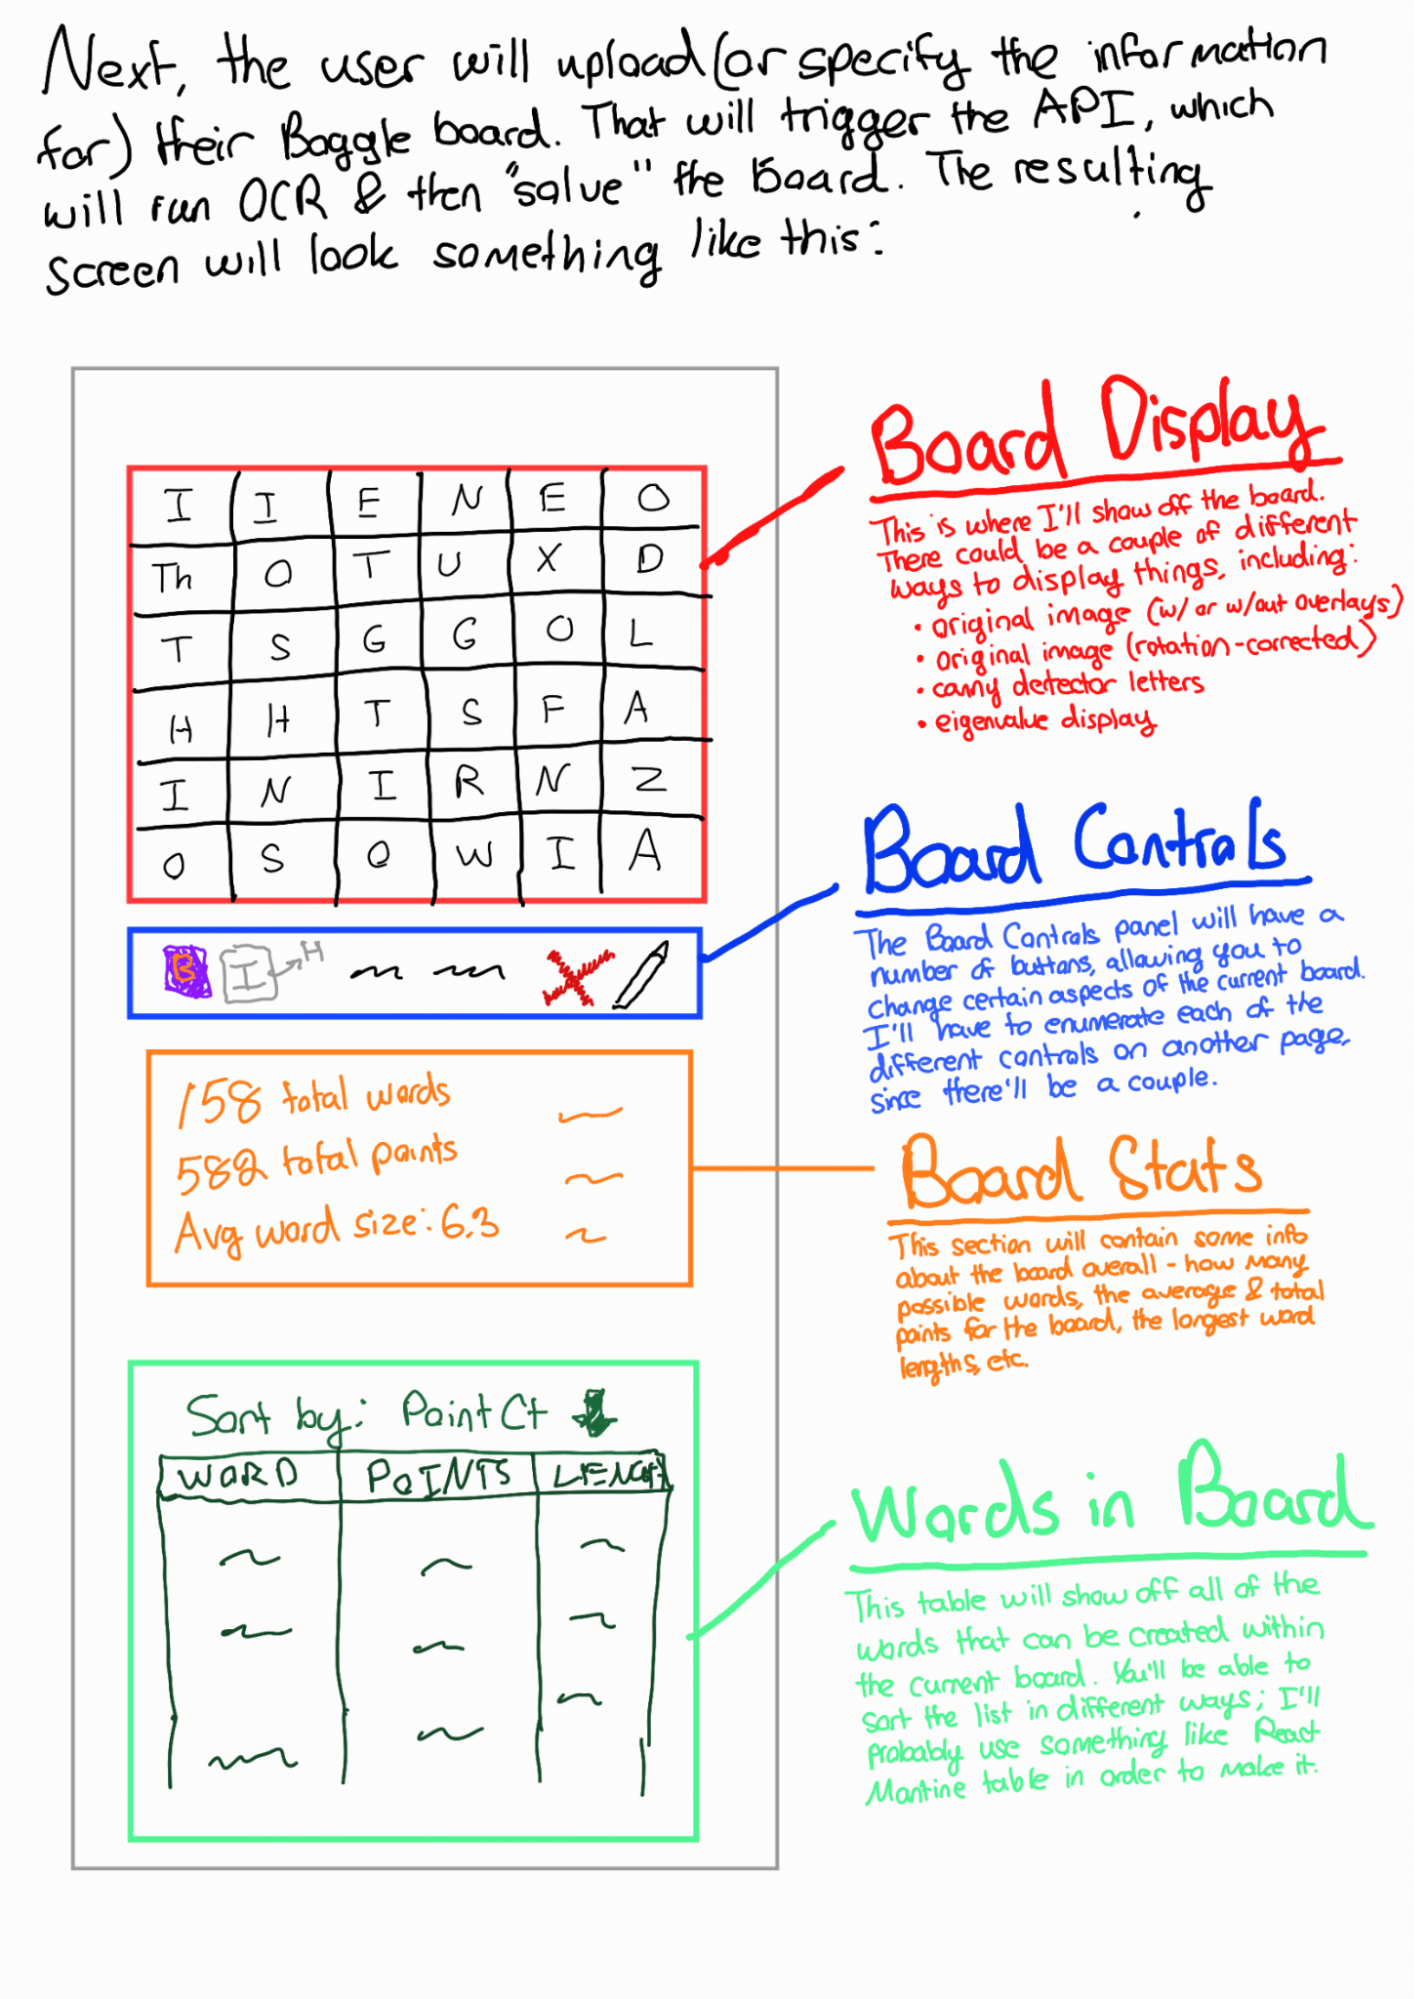 Next, the user will upload (or specify the information
for) their Boggle board. That will trigger the API, which
will run OCR & then "solve" the board. The resulting
screen will look something like this:
I I E N E O
Th O T U X D
T S G G O L
H H T S F A
I N I R N Z
O S O W I A
B I H
158 total words
582 total points
Avg word size: 6.3
Sort by: Point Ct
WORD POINTS LENGTH
Board Display
This is where I'll show off the board.
There could be a couple of different
ways to display things, including:
• original image (w/ or w/out overlays)
• original image (rotation-corrected)
• canny detector letters
• eigenvalue display
Board Controls
The Board Controls panel will have a
number of buttons, allowing you to
change certain aspects of the current board.
I'll have to enumerate each of the
different controls on another page,
since there'll be a couple.
Board Stats
This section will contain some info
about the board overall - how many
possible words, the average & total
points for the board, the longest word
lengths, etc.
Words in Board
This table will show off all of the
words that can be created within
the current board. You'll be able to
sort the list in different ways; I'll
probably use something like React
Mantine table in order to make it.